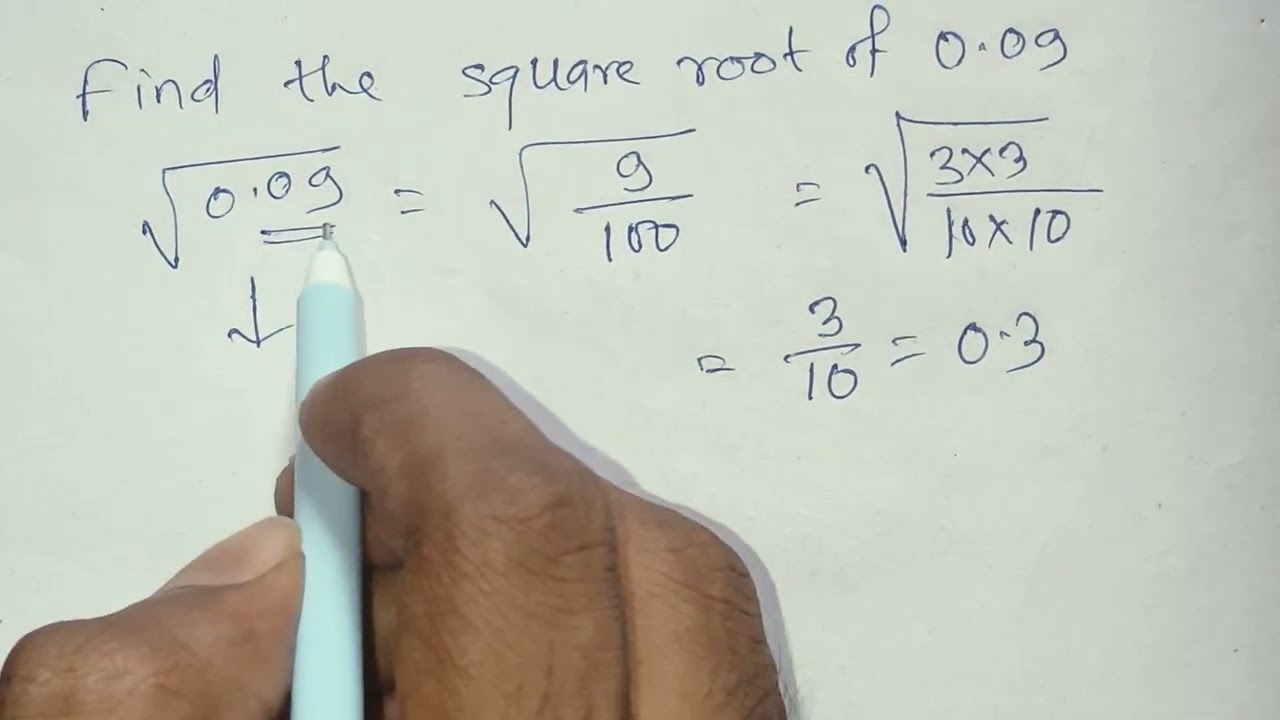 Find the square root of 0.09
√0.09 = √9/100 = √3×3/10×10
= 3/10 = 0.3